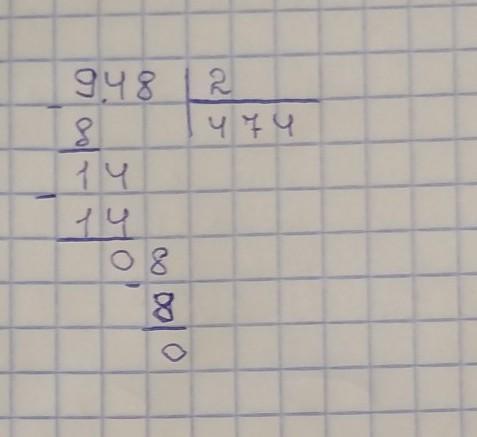 948 | 2
- 8 | 474
14
- 14
08
- 8
0